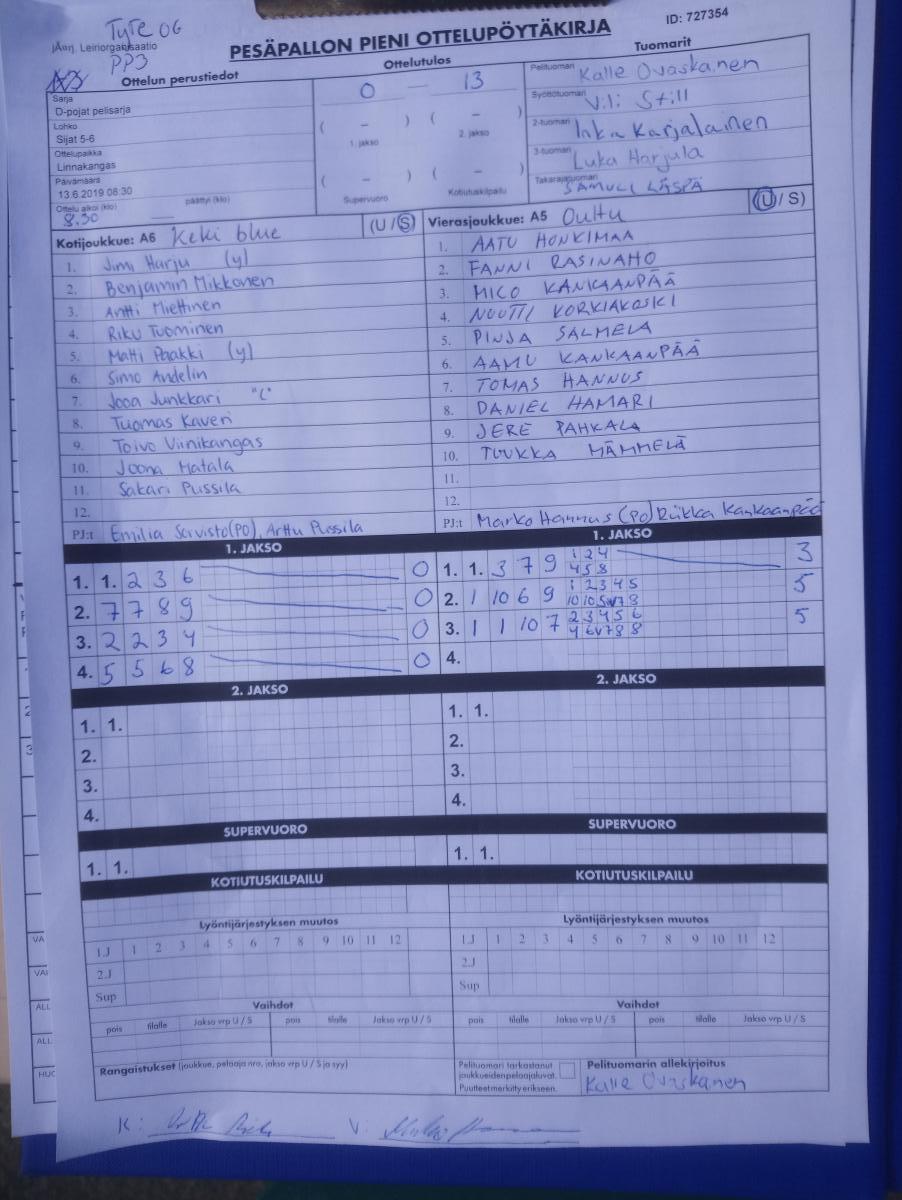 TyTe OG
PP3
Järj. Leiriorganisaatio
PESÄPALLON PIENI OTTELUPÖYTÄKIRJA
ID: 727354
Ottelun perustiedot
Ottelutulos
Tuomarit
Sarja
D-pojat pelisarja
Lohko
Sijat 5-6
Ottelupaikka
Linnakangas
Päivämäärä
13.6.2019 08:30
Ottelu alkoi (klo)
8.30
päättyi (klo)
0 — 13
( – ) ( – )
1. jakso 2. jakso
( – ) ( – )
Supervuoro Kotiutuskilpailu
Pelituomari Kalle Ovaskainen
Syöttötuomari Vili Still
2-tuomari Inka Karjalainen
3-tuomari Luka Harjula
Takarajatuomari SAMULI LÄSPÄ
Kotijoukkue: A6 Keki blue (U / S)
1. Jimi Harju (y)
2. Benjamin Mikkonen
3. Antti Miettinen
4. Riku Tuominen
5. Matti Paakki (y)
6. Simo Andelin
7. Jooa Junkkari "C"
8. Tuomas Kaveri
9. Toivo Viinikangas
10. Joona Matala
11. Sakari Pussila
12.
PJ:t Emilia Sorvisto(PO), Arttu Pussila
Vierasjoukkue: A5 Oulu (U / S)
1. AATU HONKIMAA
2. FANNI RASINAHO
3. MICO KANKAANPÄÄ
4. NUUTTI KORKIAKOSKI
5. PINJA SALMELA
6. AAMU KANKAANPÄÄ
7. TOMAS HANNUS
8. DANIEL HAMARI
9. JERE PAHKALA
10. TUUKKA MÄMMELÄ
11.
12.
PJ:t Marko Hannus (PO) Riikka Kankaanpää
1. JAKSO
1. 1. 2 3 6 0
2. 7 7 8 9 0
3. 2 2 3 4 0
4. 5 5 6 8 0
1. JAKSO
1. 1. 3 7 9 1 2 4 3
4 5 8
2. 1 10 6 9 1 2 3 4 5 5
10 10 5 v 7 8
3. 1 1 10 7 2 3 4 5 6 5
4 6 v 7 8 8
4.
2. JAKSO
1. 1.
2.
3.
4.
2. JAKSO
1. 1.
2.
3.
4.
SUPERVUORO
1. 1.
SUPERVUORO
1. 1.
KOTIUTUSKILPAILU
KOTIUTUSKILPAILU
Lyöntijärjestyksen muutos
1.J 1 2 3 4 5 6 7 8 9 10 11 12
2.J
Sup
Lyöntijärjestyksen muutos
1.J 1 2 3 4 5 6 7 8 9 10 11 12
2.J
Sup
Vaihdot
pois tilalle Jakso vrp U / S pois tilalle Jakso vrp U / S
Vaihdot
pois tilalle Jakso vrp U / S pois tilalle Jakso vrp U / S
Rangaistukset (joukkue, pelaaja nro, jakso vrp U / S ja syy)
Pelituomari tarkastanut
joukkueiden pelaajaluvat.
Puutteet merkitty erikseen.
Pelituomarin allekirjoitus
Kalle Ovaskanen
K:
V: